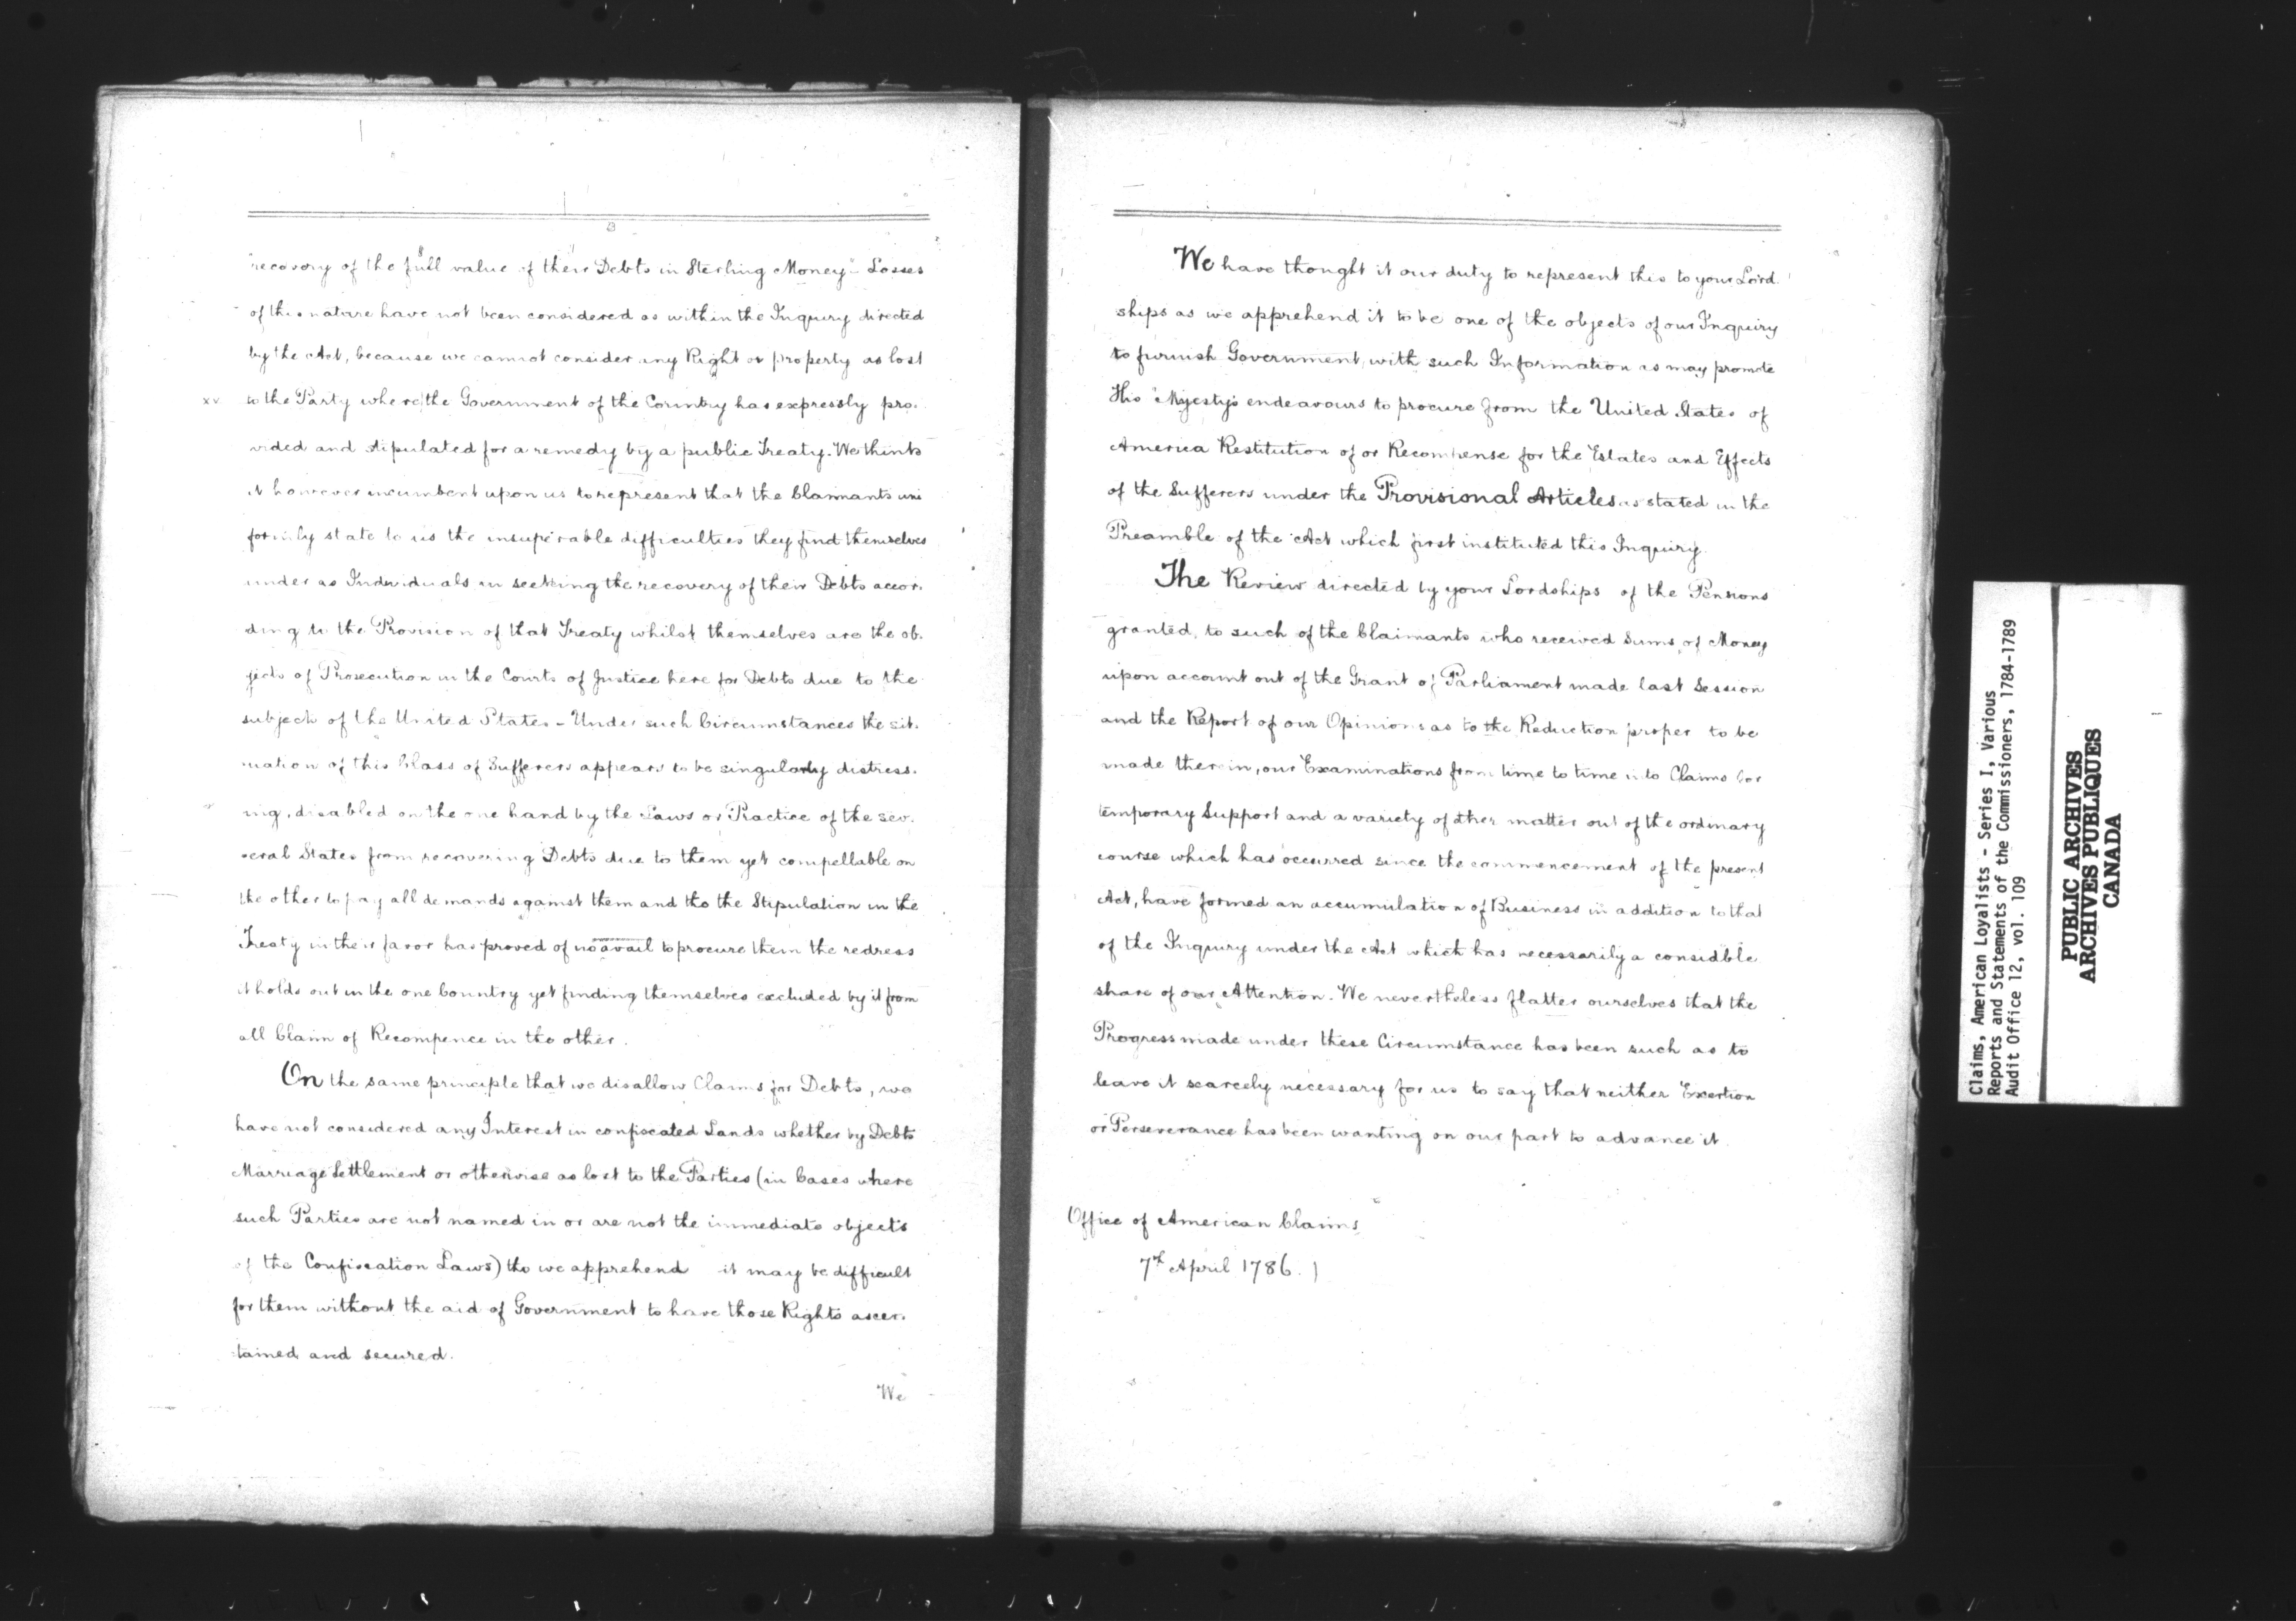 "recovery of the full value of their Debts in Sterling Money" - Losses
of this nature have not been considered as within the Inquiry directed
by the Act, because we cannot consider any Right or property as lost
to the Party where the Government of the Country has expressly pro-
vided and stipulated for a remedy by a public Treaty. We think
it however incumbent upon us to represent that the Claimants uni
formily state to us the insuperable difficulties they find themselves
under as Individuals in seeking the recovery of their Debts accor-
ding to the Provision of that Treaty whilst themselves are the ob-
jects of Prosecution in the Courts of Justice here for Debts due to the
subjects of the United States - Under such Circumstances the sit-
uation of this Class of Sufferers appears to be singularly distress-
ing, disabled on the one hand by the Laws or Practice of the sev-
eral States from recovering Debts due to them yet compellable on
the other to pay all demands against them and tho the Stipulation in the
Treaty in their favor has proved of no avail to procure them the redress
it holds out in the one Country yet finding themselves excluded by it from
all Claim of Recompence in the other.
On the same principle that we disallow Claims for Debts, we
have not considered any Interest in confiscated Lands whether by Debts
Marriage Settlement or otherwise as lost to the Parties (in Cases where
such Parties are not named in or are not the immediate objects
of the Confiscation Laws) tho we apprehend it may be difficult
for them without the aid of Government to have those Rights ascer-
tained and secured.
We
We have thought it our duty to represent this to your Lord-
ships as we apprehend it to be one of the objects of our Inquiry
to furnish Government with such Information as may promote
His Majesty's endeavours to procure from the United States of
America Restitution of or Recompense for the Estates and Effects
of the Sufferers under the Provisional Articles as stated in the
Preamble of the Act which first instituted this Inquiry.
The Review directed by your Lordships of the Pensions
granted, to such of the Claimants who received Sums of Money
upon account out of the Grant of Parliament made last Session
and the Report of our Opinions as to the Reduction proper to be
made therein, our Examinations from time to time into Claims for
temporary Support and a variety of other matter out of the ordinary
course which has occurred since the commencement of the present
Act, have formed an accumulation of Business in addition to that
of the Inquiry under the Act which has necessarily a considble
share of our Attention. We nevertheless flatter ourselves that the
Progress made under these Circumstance has been such as to
leave it scarcely necessary for us to say that neither Exertion
or Perseverance has been wanting on our part to advance it.
Office of American Claims
7th April 1786.
Claims, American Loyalists - Series I, Various
Reports and Statements of the Commissioners, 1784-1789
Audit Office 12, vol. 109
PUBLIC ARCHIVES
ARCHIVES PUBLIQUES
CANADA